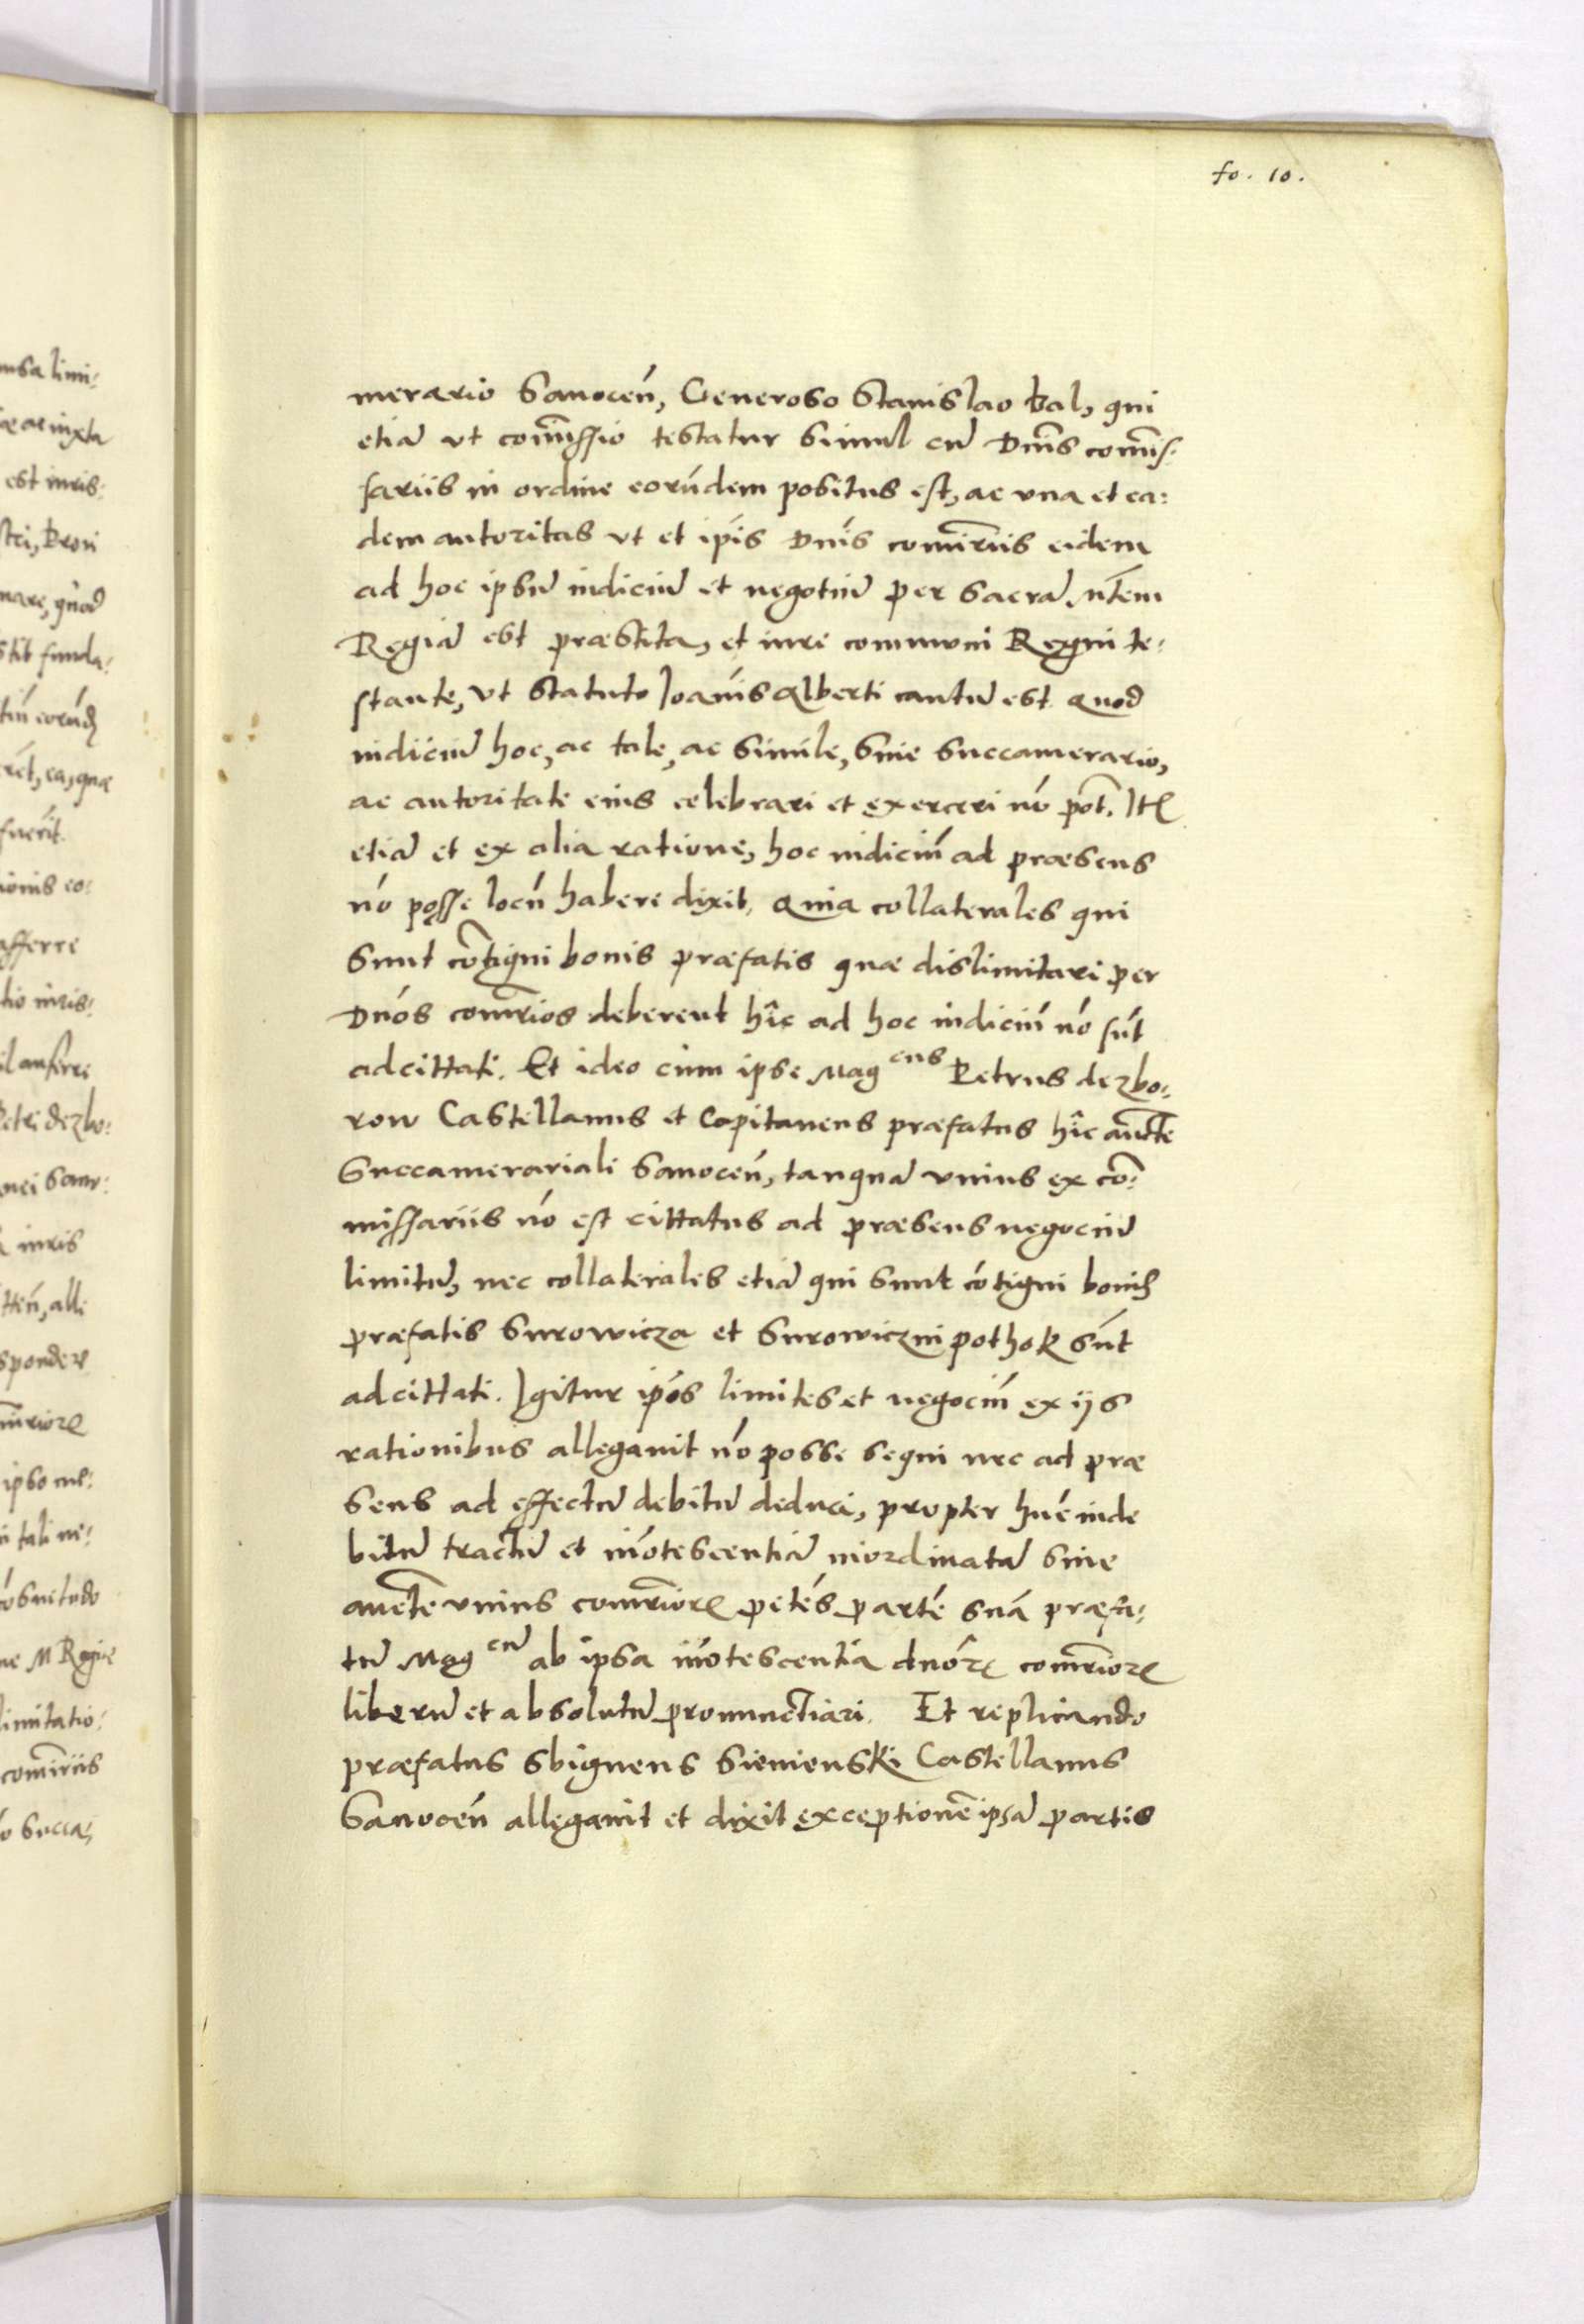 fo. 10.
merario Sanoceñ, Generoso Stanislao Bal, qui
etiã vt com̃issio testatur simul cũ Dñis com̃is-
sariis in ordine eorũdem positus est, ac vna et ea:
dem autoritas vt et ip̃is Dñis com̃riis eidem
ad hoc ipsũ iudiciũ et negotiũ per Sacrã Mtem
Regiã est præstita, et iure communi Regni te:
stante, vt statuto Ioãnis Alberti cautũ est. Quod
iudiciũ hoc, ac tale, ac simile, sine succamerario,
ac autoritate eius celebrari et exerceri nõ põt. Itẽ
etiã et ex alia ratione, hoc iudiciũ ad præsens
nõ posse locũ habere dixit, Quia collaterales qui
sunt cõtigui bonis præfatis quæ dislimitari per
Dños com̃rios deberent hîc ad hoc iudiciũ nõ sũt
adcittati. Et ideo cum ipse Mag cus Petrus de Zbo:
row Castellanus et Capitaneus præfatus hîc auctte
Succamerariali Sanoceñ, tanquã vnius ex cõ:
missariis nõ est cittatus ad præsens negociũ
limitũ, nec collaterales etiã qui sunt cõtigui bonis
præfatis Surowicza et Surowiczni pothok sũt
adcittati. Igitur ip̃os limites et negociũ ex iys
rationibus allegauit nõ posse sequi nec ad præ
sens ad effectũ debitũ deduci, propter hũc inde
bitũ tractũ et iñotescentiã inordinatã sine
auctte vnius com̃riorũ petẽs partẽ suã præfa:
tũ Mag cũ ab ipsa iñotescentia dñorũ com̃riorũ
liberũ et absolutũ pronunctiari. Et replicando
præfatus Sbigneus Sienienski Castellanus
Sanoceñ allegauit et dixit exceptionẽ ipsã partis